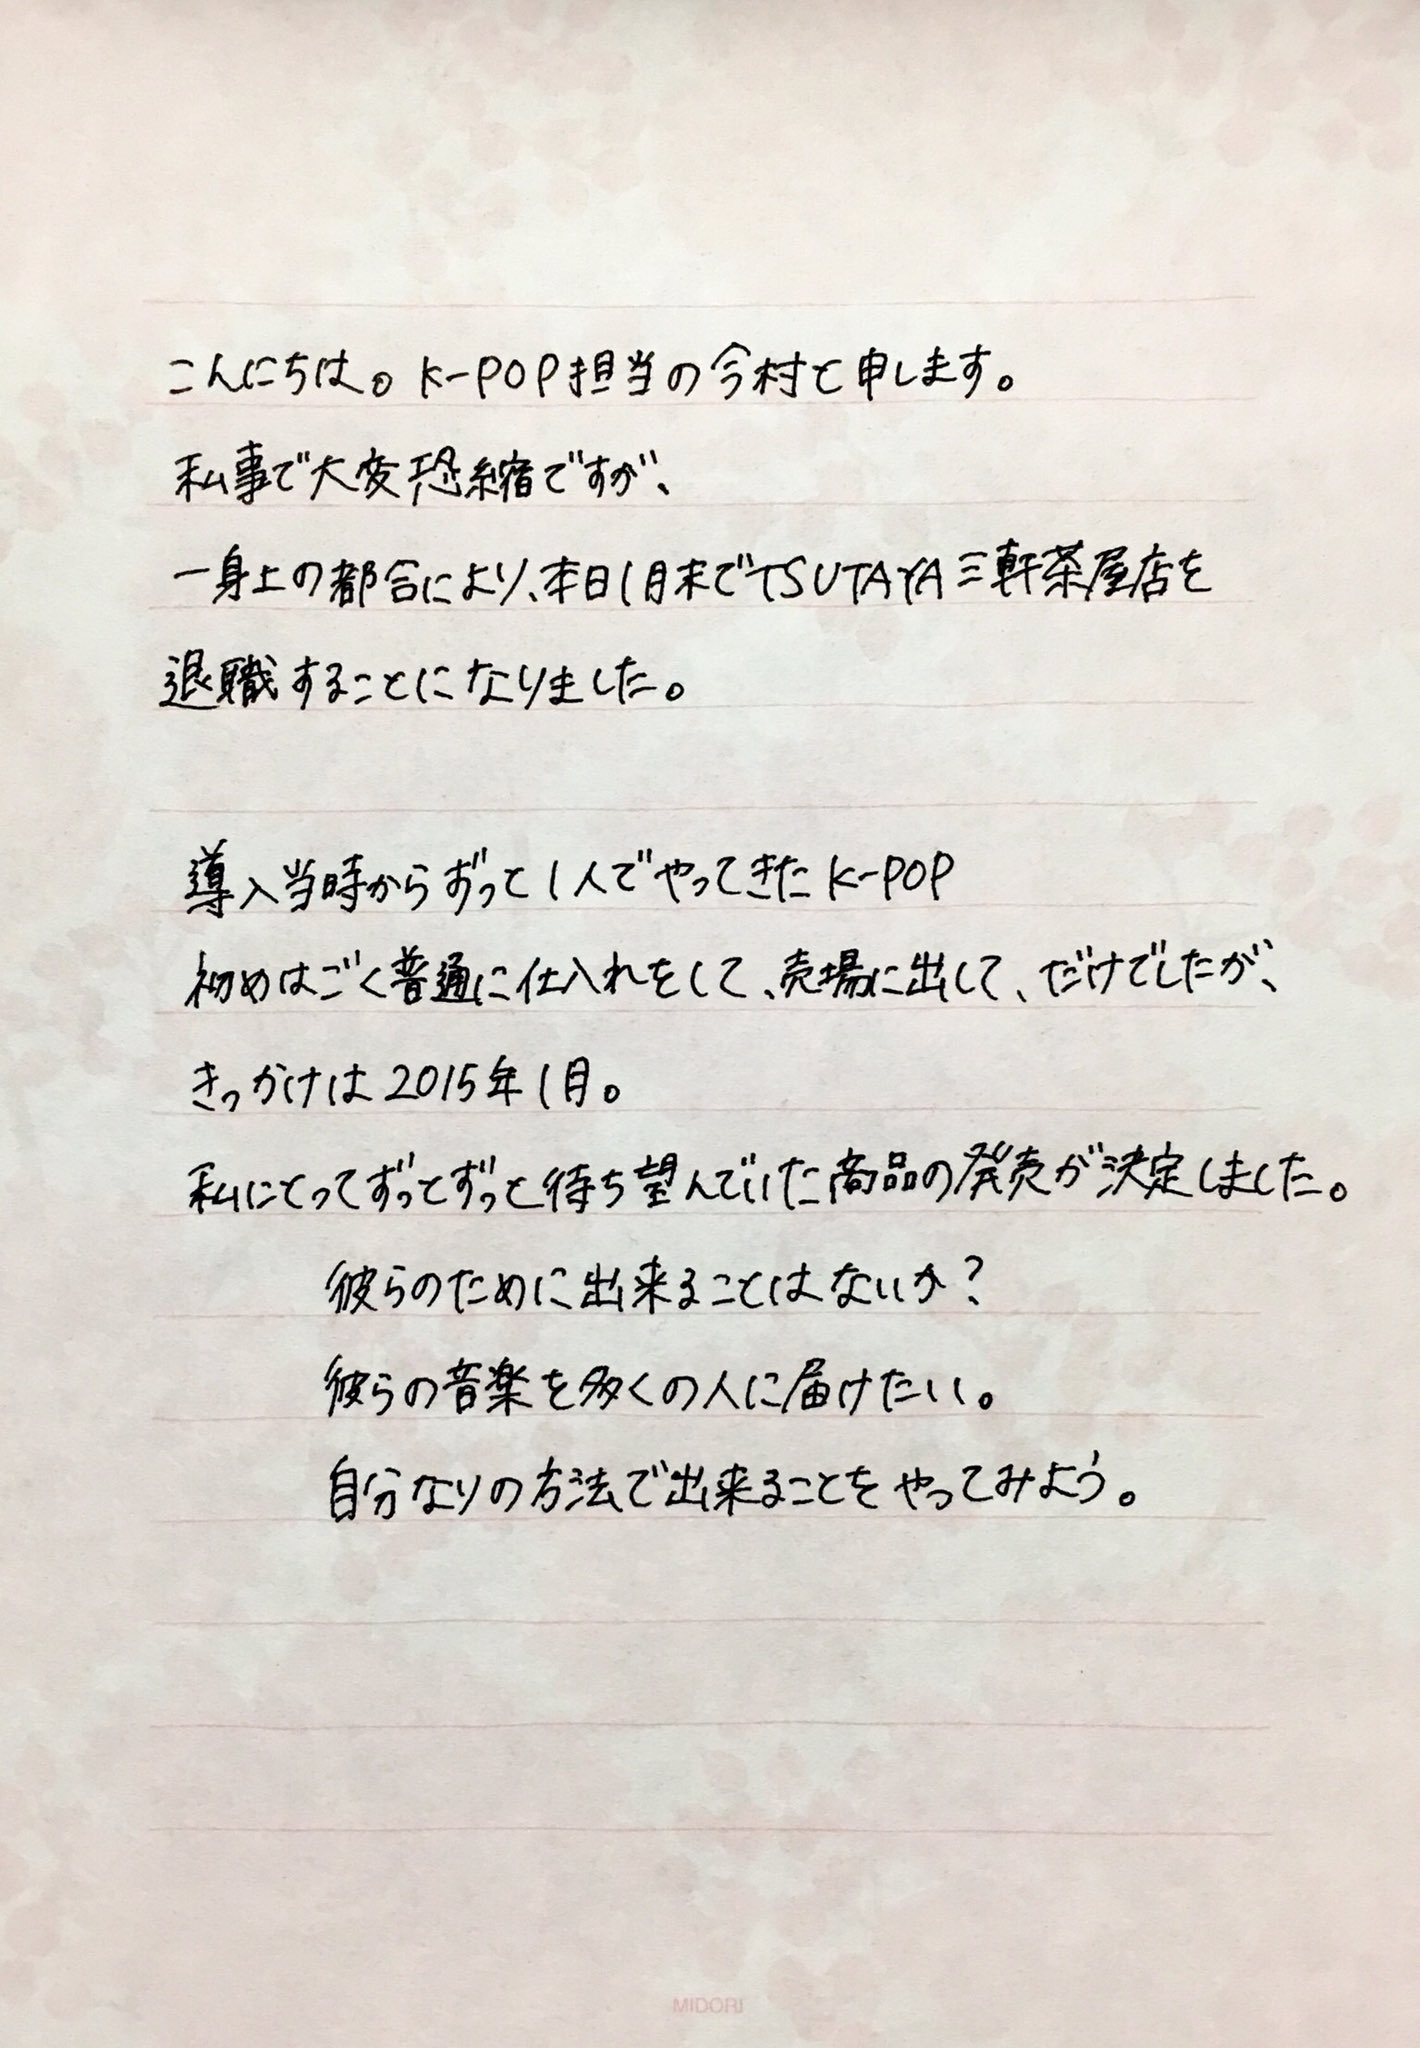 こんにちは。K-POP担当の今村と申します。
私事で大変恐縮ですが、
一身上の都合により、本日1月末でTSUTAYA三軒茶屋店を
退職することになりました。
導入当時からずっと1人でやってきたK-POP
初めはごく普通に仕入れをして、売場に出して、だけでしたが、
きっかけは2015年1月。
私にとってずっとずっと待ち望んでいた商品の発売が決定しました。
彼らのために出来ることはないか?
彼らの音楽を多くの人に届けたい。
自分なりの方法で出来ることをやってみよう。
MIDORI